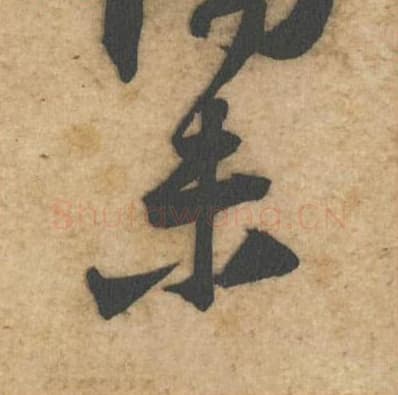 朱
Shufawang.CN